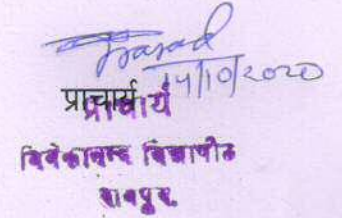 Prasad
14/10/2020
प्राचार्य
प्राचार्य
विवेकानन्द विद्यापीठ
रायपुर